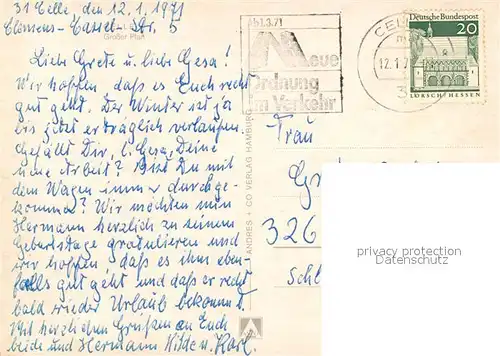 31 Celle, den 12.1.1971
Clemens-Cassel-Str. 5
Großer Plan
Liebe Grete u. liebe Gesa!
Wir hoffen daß es Euch recht
gut geht. Der Winter ist ja
bis jetzt erträglich verlaufen.
Gefällt Dir, l. Gesa, Deine
neue Arbeit? Bist Du mit
dem Wagen immer durchge-
kommen? Wir möchten nun
Hermann herzlich zu seinem
Geburtstage gratulieren und
wir hoffen, daß es ihm eben-
falls gut geht und daß er recht
bald wieder Urlaub bekommt.
Mit herzlichen Grüßen an Euch
beide und Hermann Hilde u. Karl.
ANDRES + CO VERLAG HAMBURG
Ab 1.3.71
Neue
Ordnung
im Verkehr
CELLE
12.1.7
3
Deutsche Bundespost
20
LORSCH/HESSEN
Frau
Gr
326
Schl
privacy protection
Datenschutz